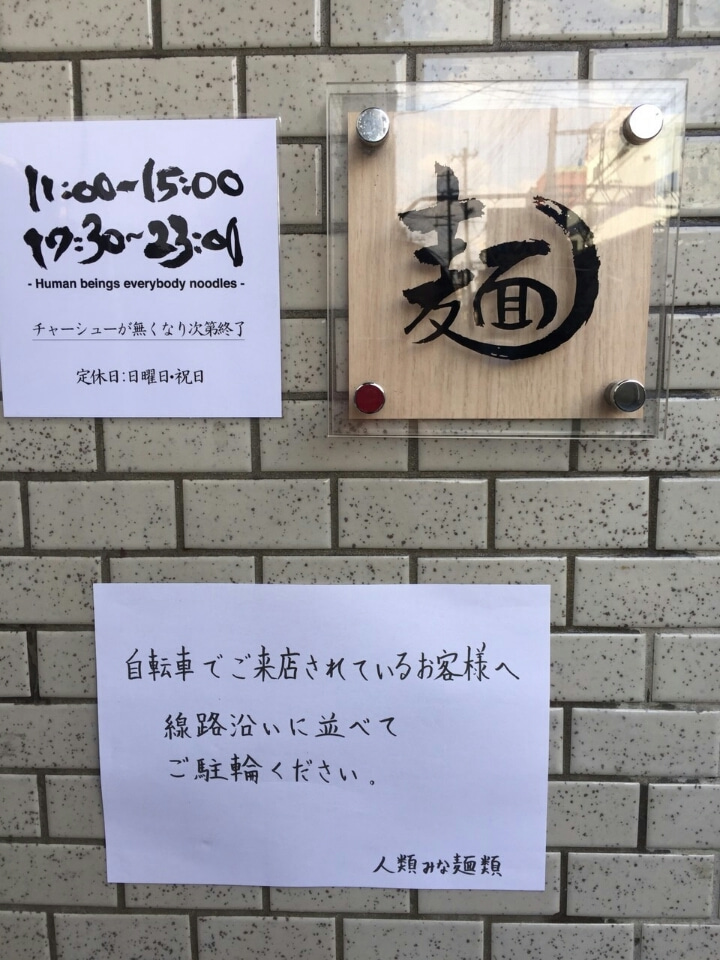 11:00~15:00
17:30~23:00
- Human beings everybody noodles -
チャーシューが無くなり次第終了
定休日:日曜日・祝日
麺
自転車でご来店されているお客様へ
線路沿いに並べて
ご駐輪ください。
人類みな麺類